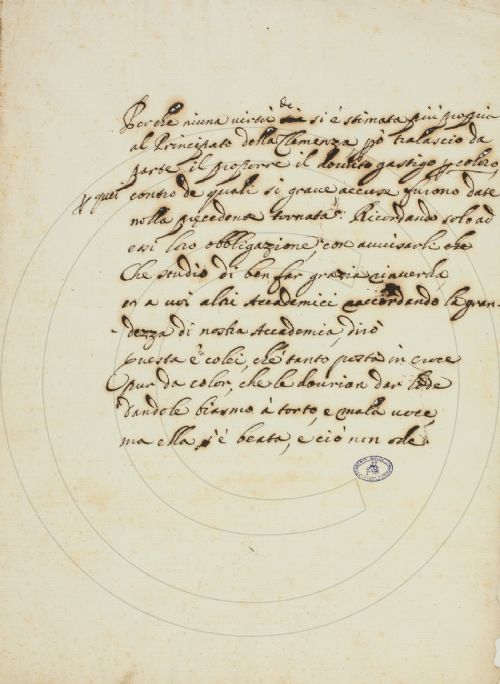 Perche niuna virtù de si è stimata più propria
al Principato della Clemenza, però tralascio da
parte il proporre il dovuto gastigo p coloro,
p quei contro de quali si grave accuse furono date
nella precedente tornata. Ricordando solo ad
essi loro obbligazione, con avvisarli che
Che studio di ben far grazia rinverda
et a voi altri Accademici raccordando la gran-
dezza di nostra Accademia, dirò
Questa è colei, che tanto posta in croce
Pur da color, che le dovrian dar lode
Dandole biasmo à torto, e mala voce,
ma ella s'è beata, e ciò non ode.